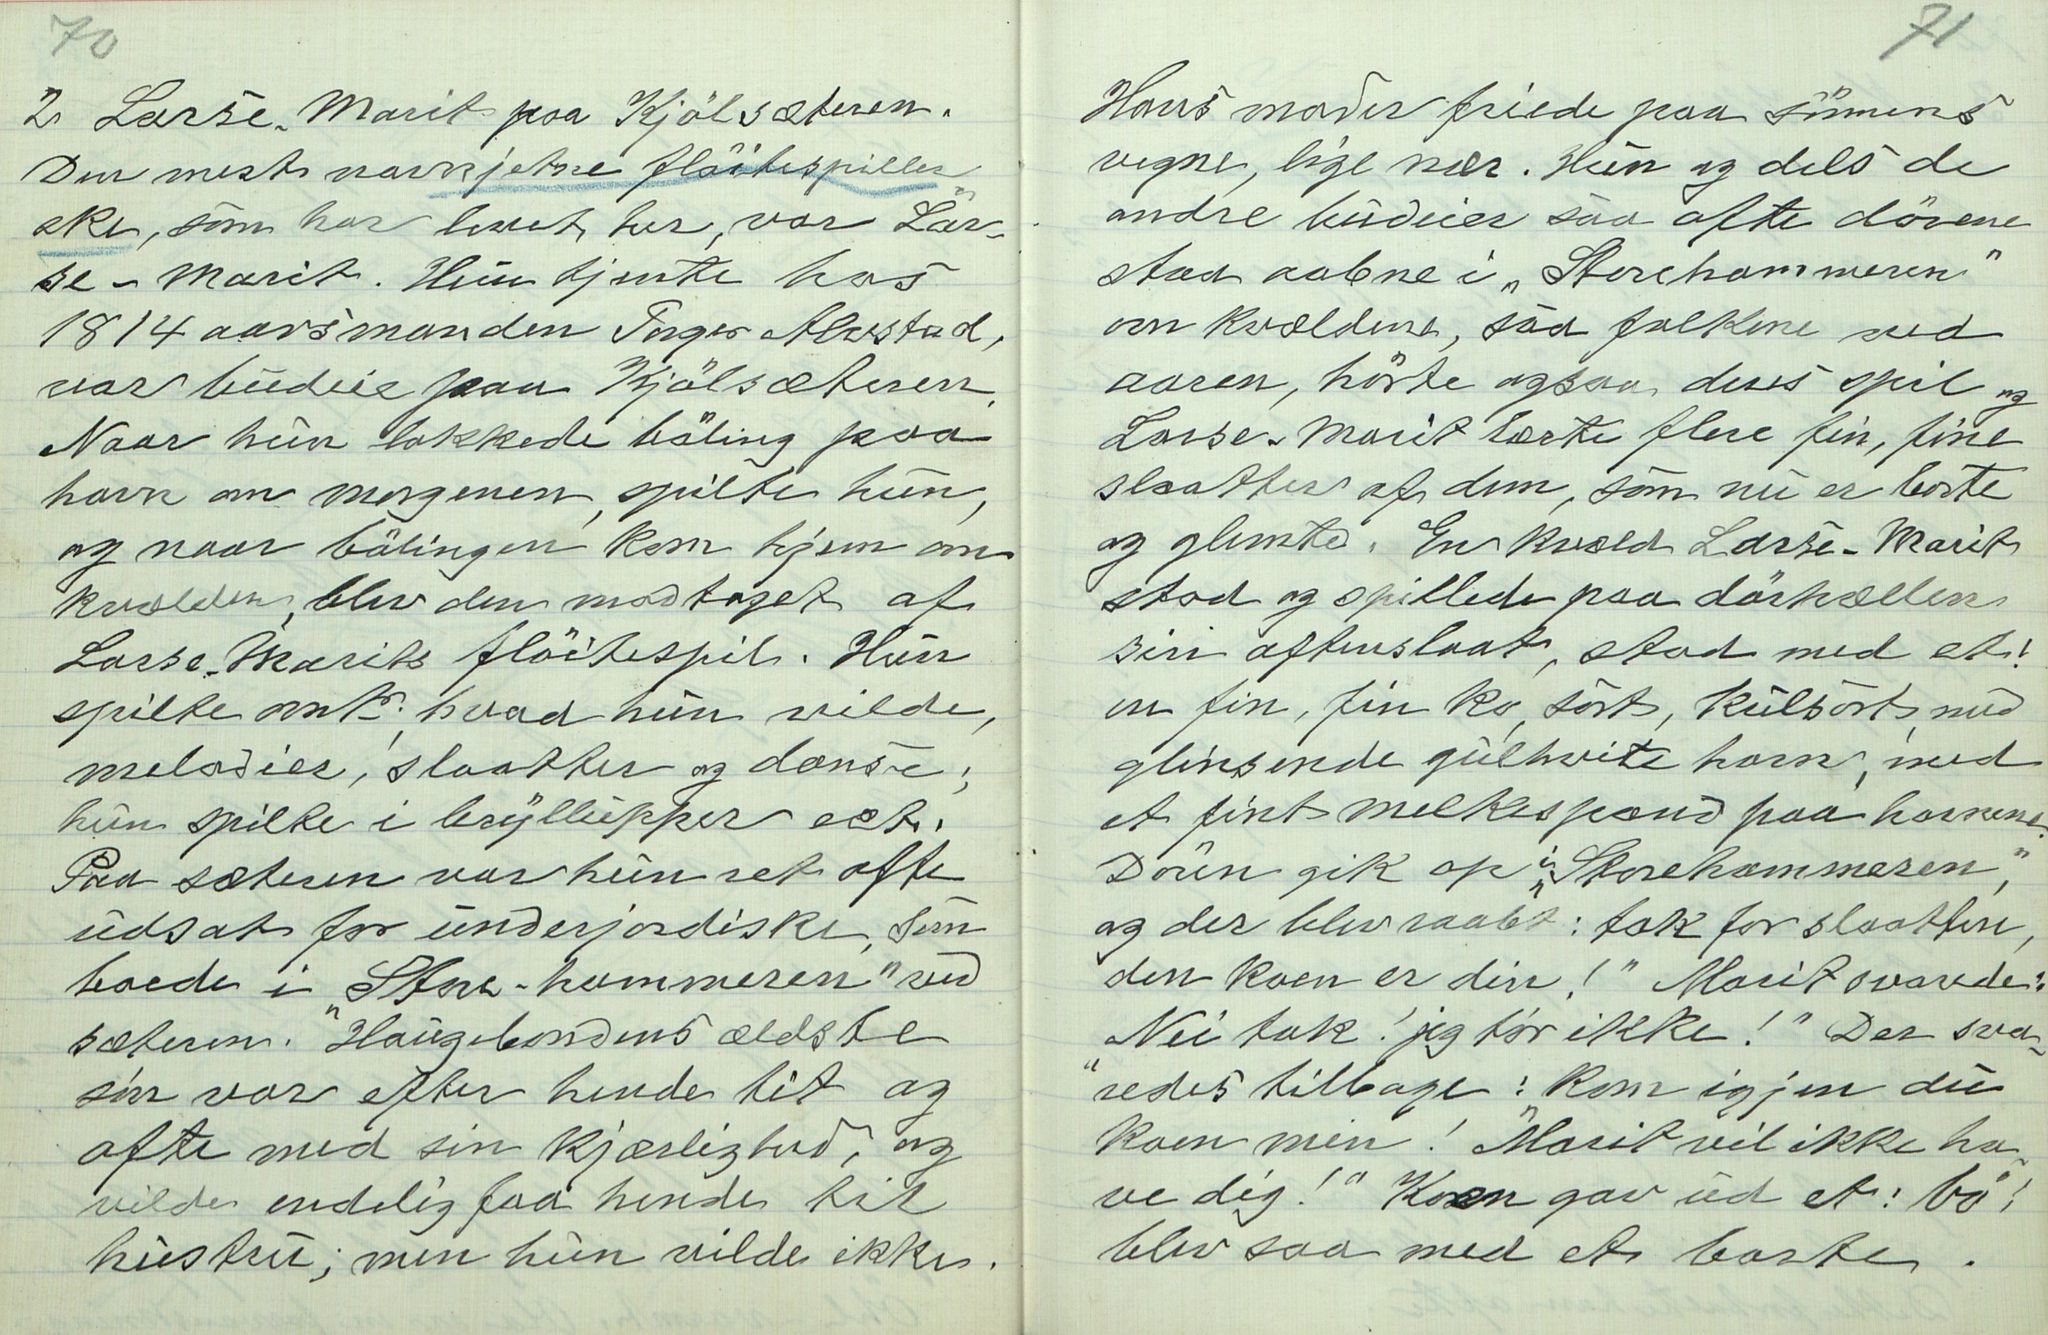 70
2. Larse-Marit paa Kjölsæteren.
Den mest navngjetne flöitespiller
ske, som har levet her, var Lar-
se-Marit. Hun tjente hos
1814 aarsmanden Inger Alvstad,
var budeie paa Kjölsæteren.
Naar hun lokkede böling paa
havn om morgenen, spilte hun,
og naar bölingen kom hjem om
kvælden, blev den modtaget af
Larse-Marits flöitespil. Hun
spilte omt. hvad hun vilde,
melodier, slaatter og danse;
hun spilte i bryllupper ect.
Paa sæteren var hun ret ofte
udsat for underjordiske, som
boede i "Store-hammeren" ved
sæteren. "Haugebondens ældste
sön var efter hende tit og
ofte med sin kjærlighed, og
vilde endelig faa hende til
hustru; men hun vilde ikke.
71
Hans moder friede paa sönnens
vegne, lige nær. Hun og dels de
andre budeier saa ofte dörene
stod aabne i "Storehammeren"
om kvældene, saa folkene ved
aaren, hörte ogsaa deres spil og
Larse-Marit lærte flere fin, fine
slaatter af dem, som nu er borte
og glemte. En kvæld Larse-Marit
stod og spillede paa dörhællen
sin aftenslaat, stod med et!
en fin, fin ko, sört, kulsört med
glinsende gulhvite horn, med
et fint melkespand paa hornene.
Dören gik op i "Storehammeren",
og der blev raabt: tak for slaatten,
den koen er din!" Marit svarede:
"Nei tak! jeg tör ikke!" Der sva-
redes tilbage: "Kom igjen du
koen min! Marit vil ikke ha-
ve dig!" Koen gav ud et: bö!
blev saa med et borte.